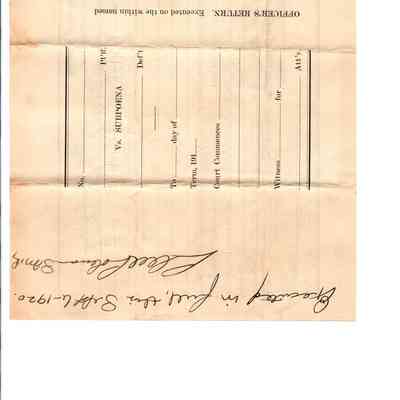 OFFICER'S RETURN. Executed on the within named
No.
Pl'ff.
Vs. SUBPOENA
Def't
To day of
Term, 191
Court Commences
Witness for
Att'y.
Executed in full, this Sept 6-1920.